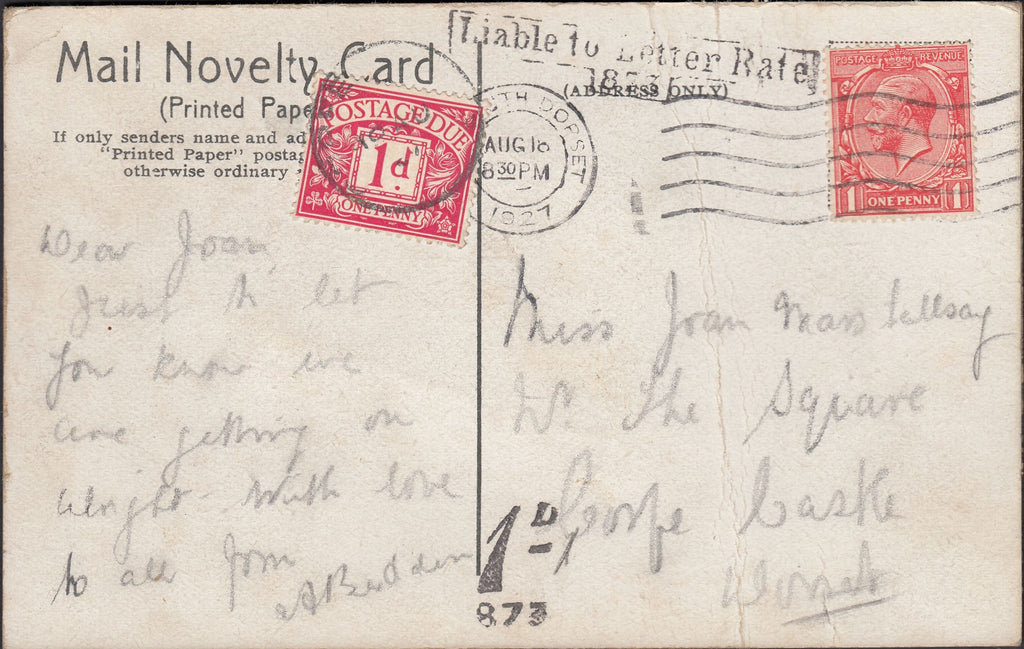 Mail Novelty Card
(Printed Pape
If only senders name and ad
"Printed Paper" postag
otherwise ordinary
POSTAGE DUE
1d.
ONE PENNY
Liable to Letter Rate
1873
(ADDRESS ONLY)
TH DORSET
AUG 18
8 30 PM
1927
POSTAGE REVENUE
1 ONE PENNY 1
Dear Joan,
Just to let
you know we
are getting on
alright. With love
to all from
Miss Joan
The Square
Corfe Castle
Dorset
1D
873